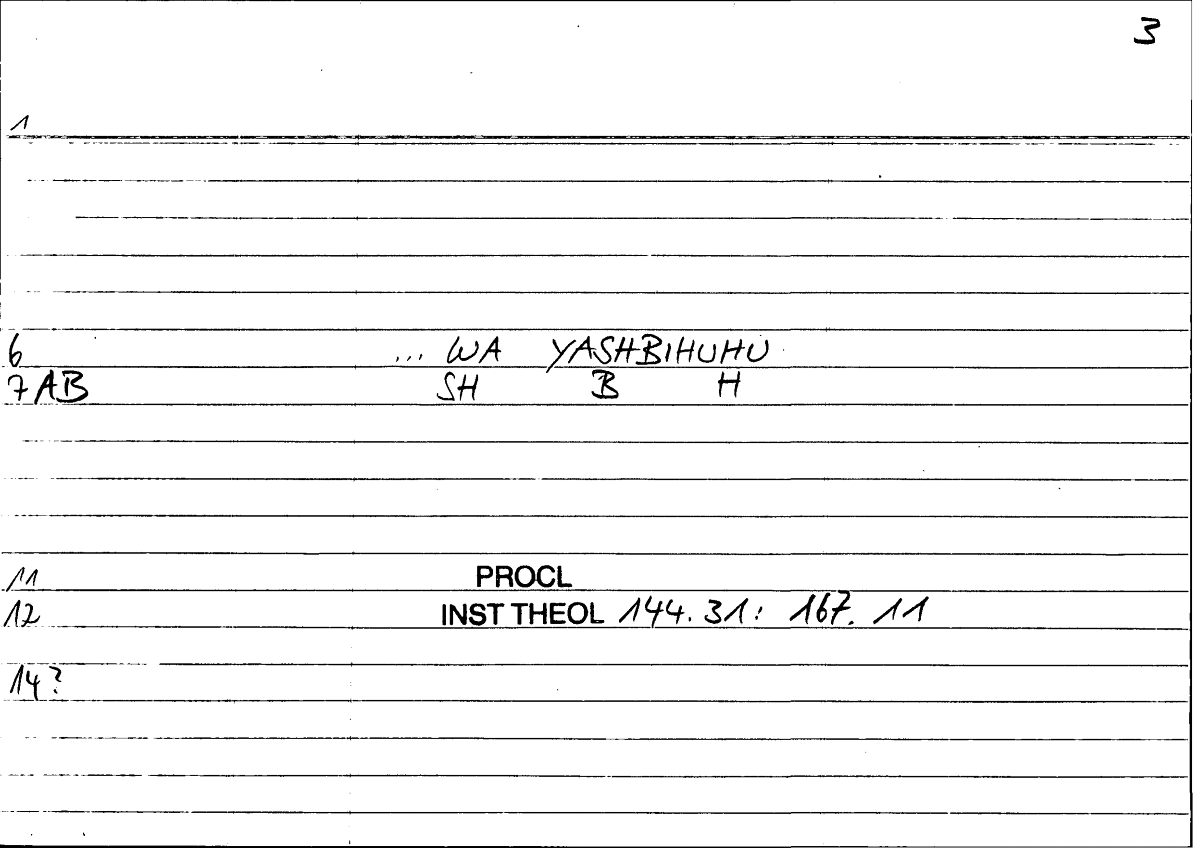 3
1
6 ... WA YASHBIHUHU
7AB SH B H
11 PROCL
12 INST THEOL 144.31: 167.11
14?